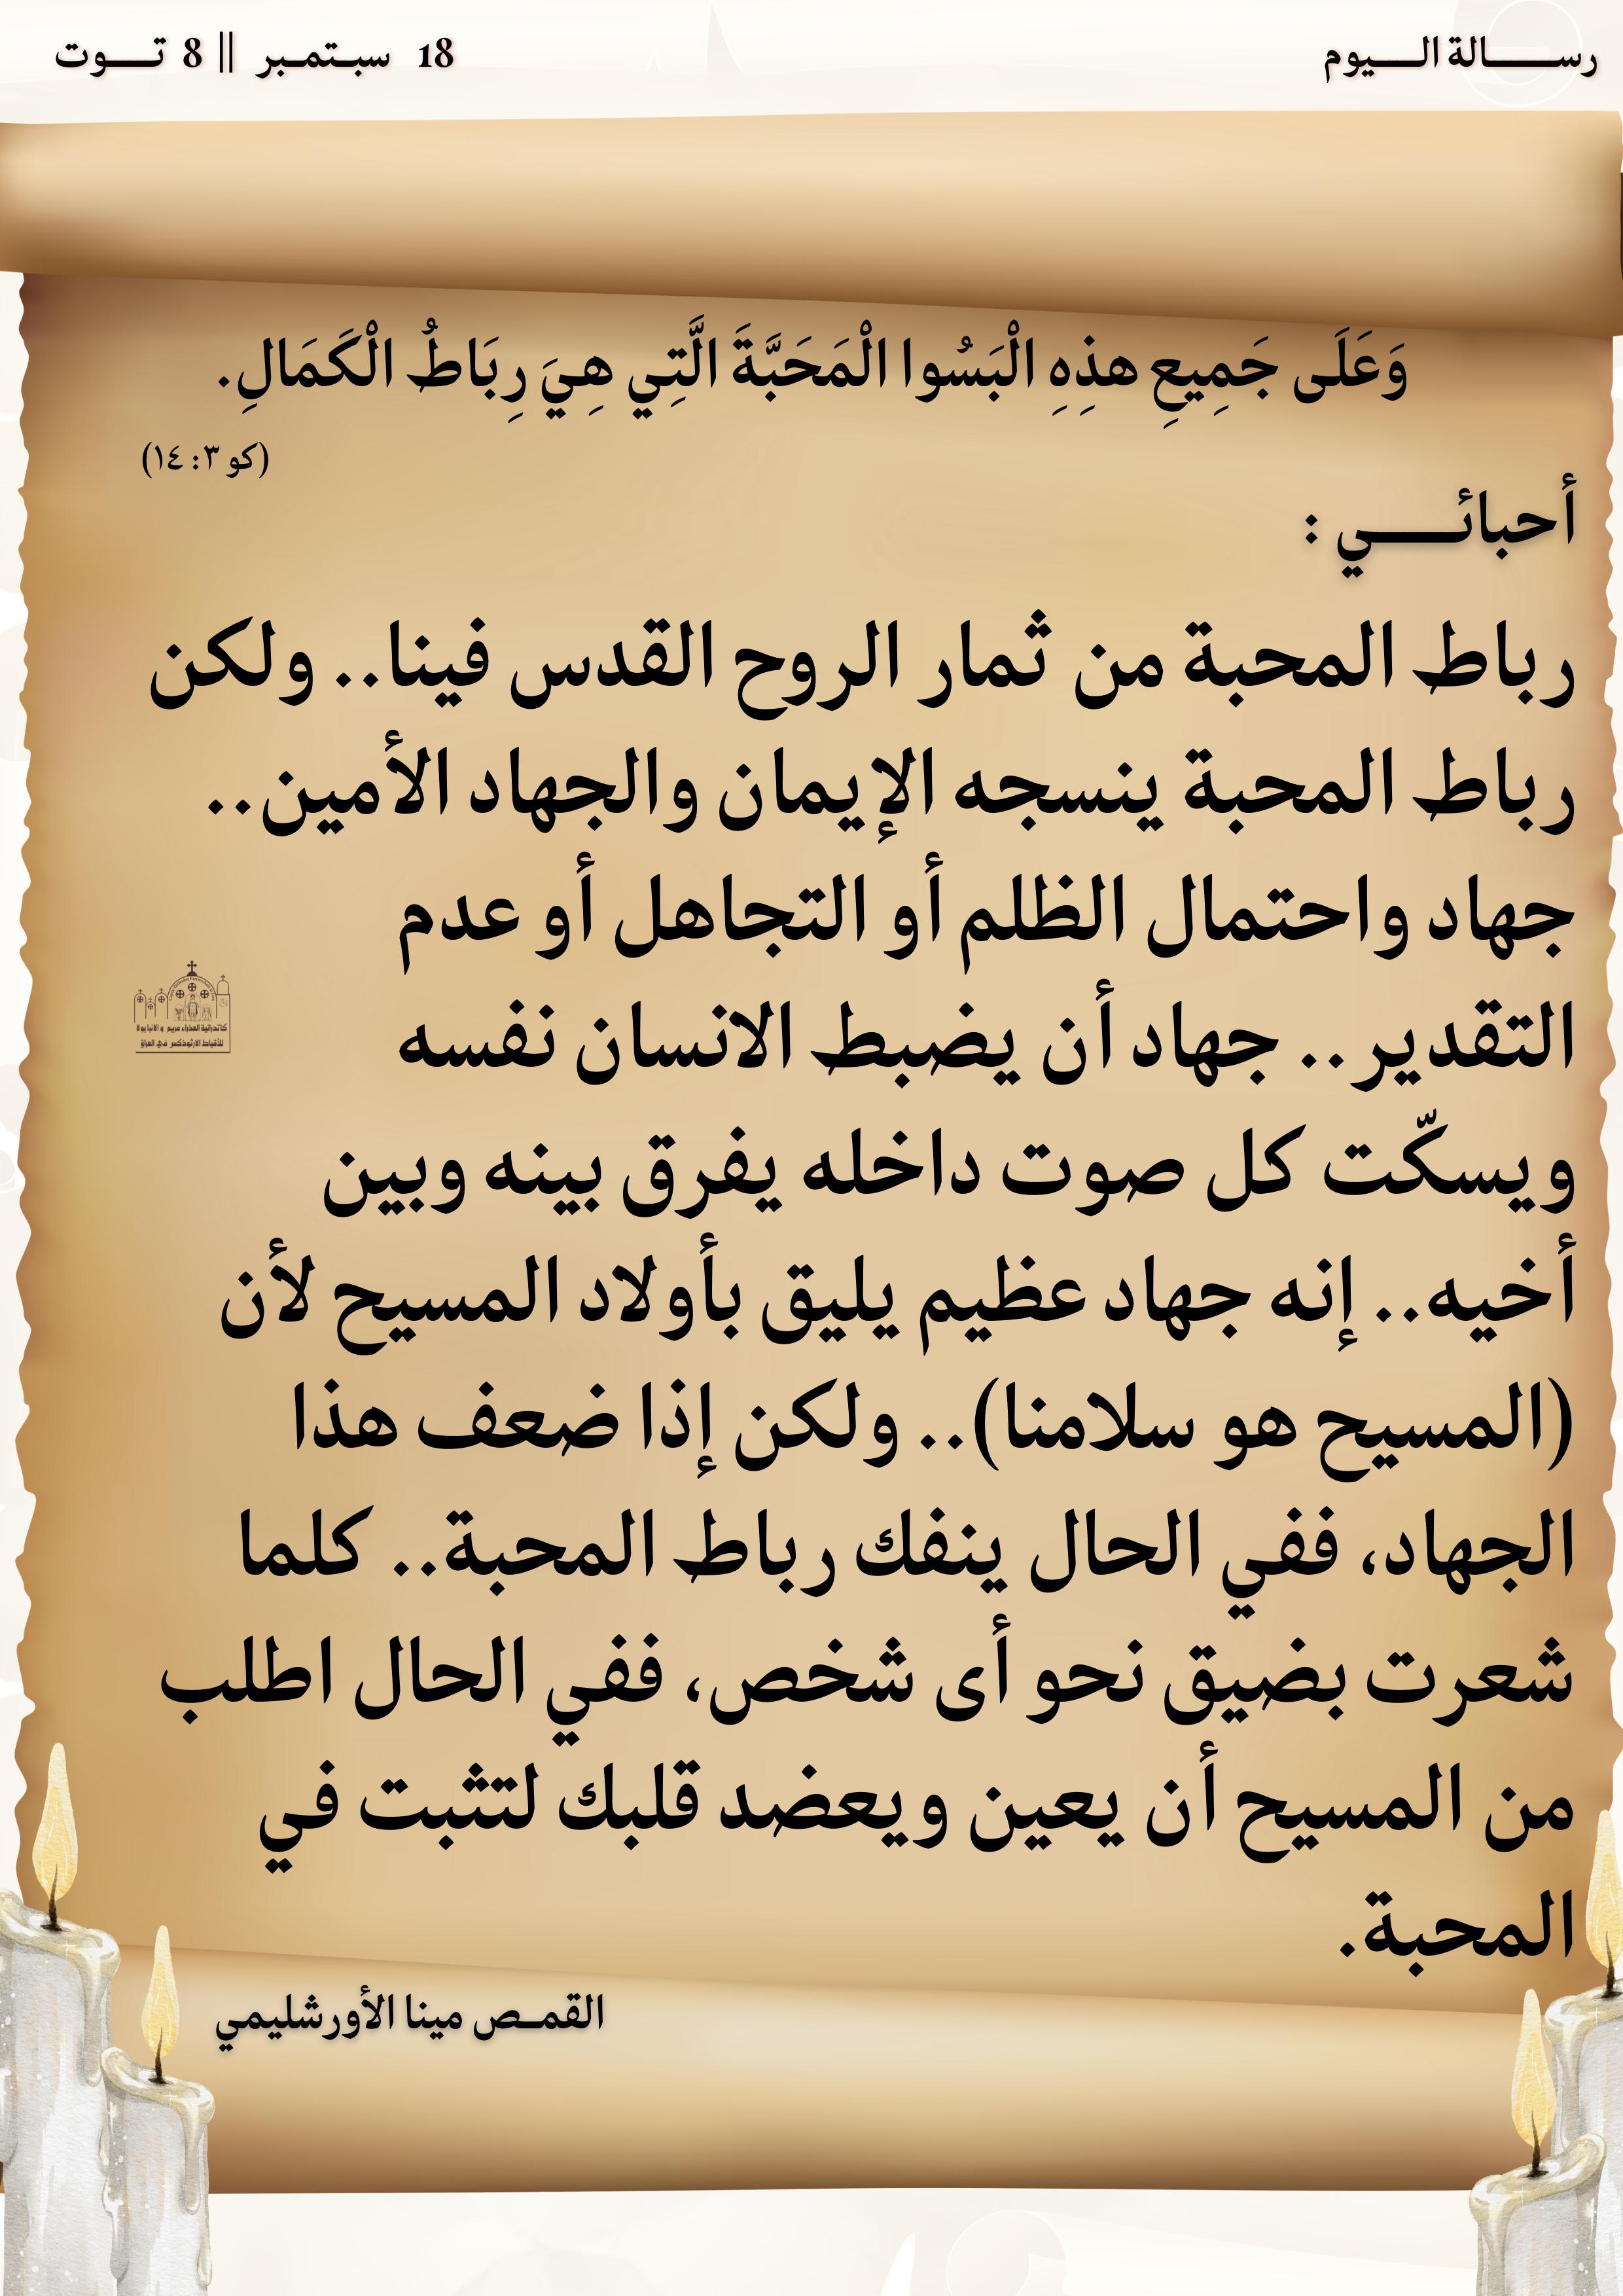 رســـــالة الـــــيوم
18 سبـتمـبر || 8 تــــوت
وَعَلَى جَمِيعِ هذِهِ الْبَسُوا الْمَحَبَّةَ الَّتِي هِيَ رِبَاطُ الْكَمَالِ.
(كو ٣: ١٤)
أحبائــــــي :
رباط المحبة من ثمار الروح القدس فينا.. ولكن
رباط المحبة ينسجه الإيمان والجهاد الأمين..
جهاد واحتمال الظلم أو التجاهل أو عدم
التقدير.. جهاد أن يضبط الانسان نفسه
ويسكّت كل صوت داخله يفرق بينه وبين
أخيه.. إنه جهاد عظيم يليق بأولاد المسيح لأن
(المسيح هو سلامنا).. ولكن إذا ضعف هذا
الجهاد، ففي الحال ينفك رباط المحبة.. كلما
شعرت بضيق نحو أى شخص، ففي الحال اطلب
من المسيح أن يعين ويعضد قلبك لتثبت في
المحبة.
كاتدرائية العذراء مريم و الانبا بولا
للأقباط الارثوذكسر في العراق
القمـص مينا الأورشليمي